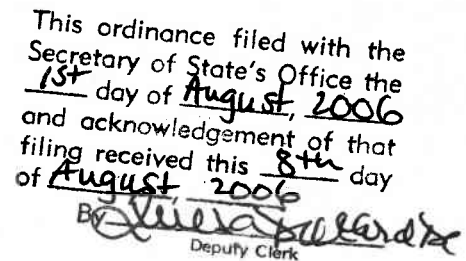 This ordinance filed with the
Secretary of State's Office the
1st day of August, 2006
and acknowledgement of that
filing received this 8th day
of August, 2006
By
Deputy Clerk